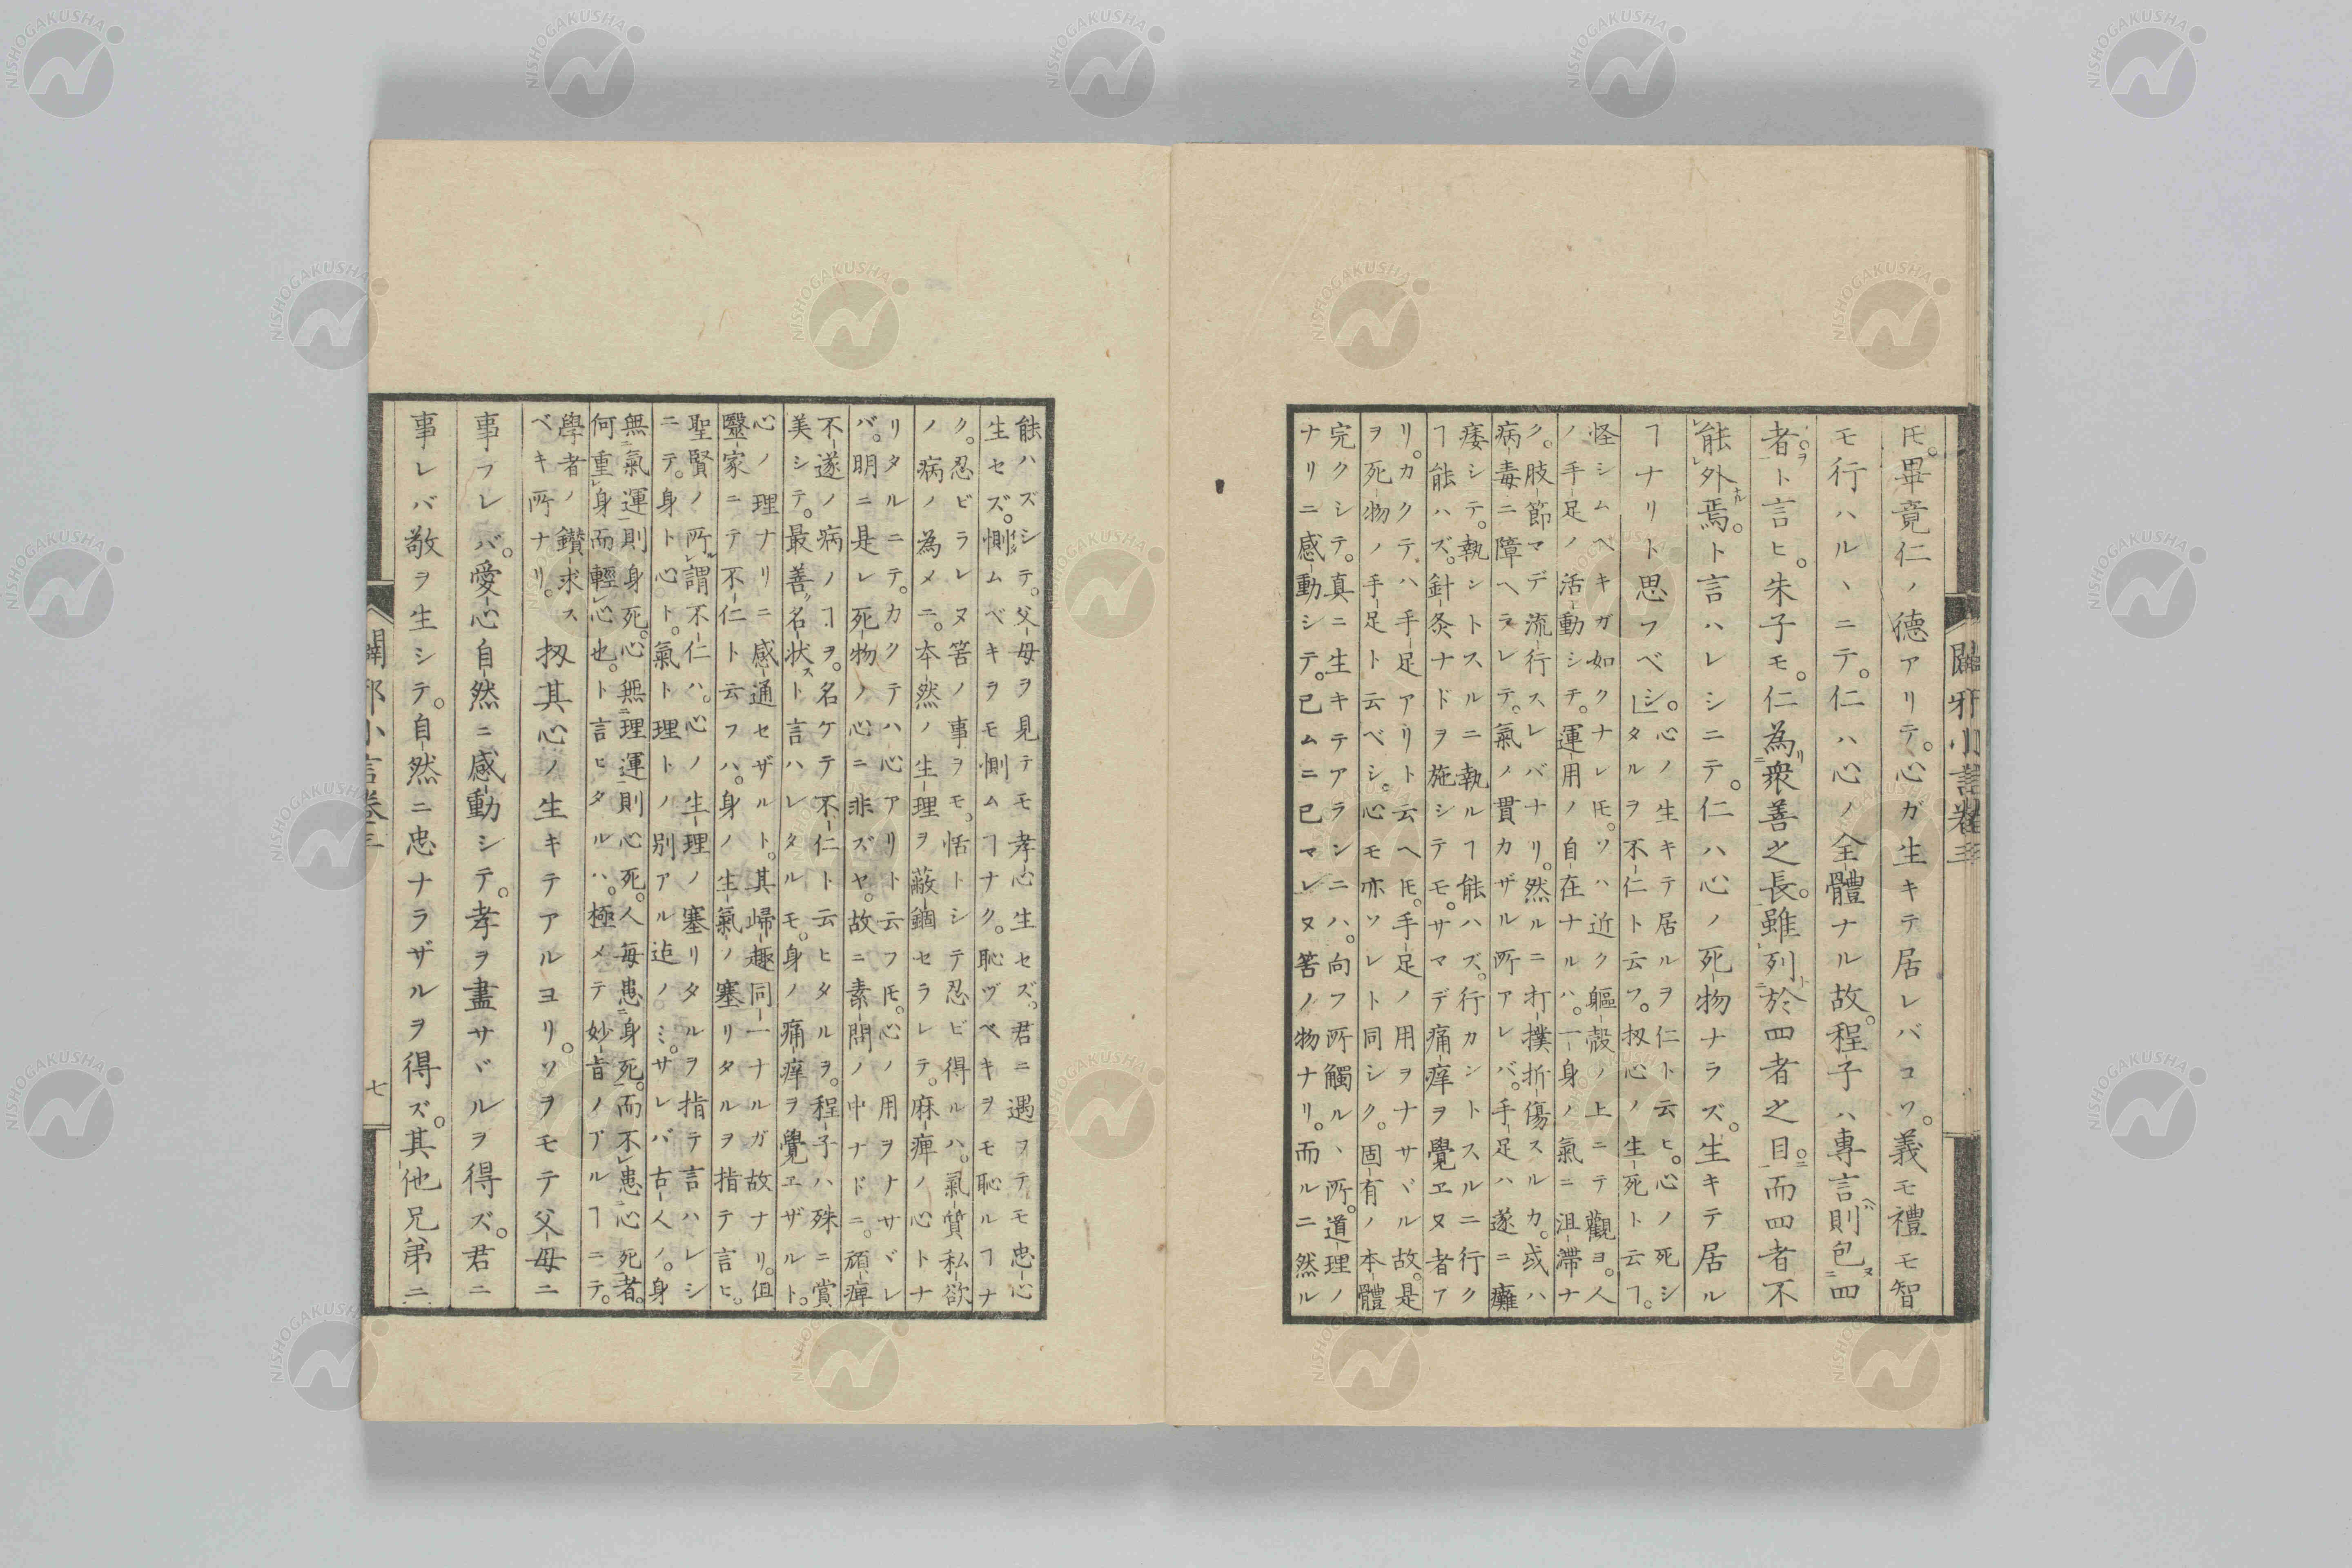 闢邪小言卷三
𪜈。畢竟仁ノ德アリテ。心ガ生キテ居レバコソ。義モ禮モ智
モ行ハルヽニテ。仁ハ心ノ全體ナル故。程子ハ專言則包四
者。ト言ヒ。朱子モ。仁為衆善之長。雖列於四者之目。而四者不
能外焉。ト言ハレシニテ。仁ハ心ノ死物ナラズ。生キテ居ル
ヿナリト思フベシ。
心ノ生キテ居ルヲ仁ト云ヒ。心ノ死シ
タルヲ不仁ト云フ。扨心ノ生死ト云ヿ。
怪シムベキガ如クナレ𪜈。ソハ近ク軀殼ノ上ニテ觀ヨ。人
ノ手足ノ活動シテ。運用ノ自在ナルハ。一身ノ氣ニ沮滯ナ
ク。肢節マデ流行スレバナリ。然ルニ打撲折傷スルカ。或ハ
病毒ニ障ヘラレテ。氣ノ貫カザル所アレバ。手足ハ遂ニ癱
痿シテ。執シトスルニ執ルヿ能ハズ。行カントスルニ行ク
ヿ能ハズ。針灸ナドヲ施シテモ。サマデ痛痒ヲ覺エヌ者ア
リ。カクテハ手足アリト云ヘ𪜈。手足ノ用ヲナサヾル故。是
ヲ死物ノ手足ト云ベシ。心モ亦ソレト同シク。固有ノ本體
完クシテ。真ニ生キテアランニハ。向フ所觸ルヽ所。道理ノ
ナリニ感動シテ。已ムニ已マレヌ筈ノ物ナリ。而ルニ然ル
能ハズシテ。父母ヲ見テモ孝心生セズ。君ニ遇フテモ忠心
生セズ。惻ムベキヲモ惻ムヿナク。恥ヅベキヲモ恥ルヿナ
ク。忍ビラレヌ筈ノ事ヲモ。恬トシテ忍ビ得ルハ。氣質私欲
ノ病ノ為メニ。本然ノ生理ヲ蔽錮セラレテ。麻痺ノ心トナ
リタルニテ。カクテハ心アリト云フ𪜈。心ノ用ヲナサヾレ
バ。明ニ是レ死物ノ心ニ非ズヤ。故ニ素問ノ中ナドニ。頑痺
不遂ノ病ノヿヲ。名ケテ不仁ト云ヒタルヲ。程子ハ殊ニ賞
美シテ。最善名状スト言ハレタルモ。身ノ痛痒ヲ覺エザルト。
心ノ理ナリニ感通セザルト。其歸趣同一ナルガ故ナリ。但
醫家ニテ不仁ト云フハ。身ノ生氣ノ塞リタルヲ指テ言ヒ。
聖賢ノ所謂不仁ハ。心ノ生理ノ塞リタルヲ指テ言ハレシ
ニテ。身ト心ト。氣ト理トノ別アル迠ノミ。サレバ古人ノ。身
無氣運則身死。心無理運則心死。人毎患身死。而不患心死者。
何重身而輕心也。ト言ヒタルハ。極メテ妙旨ノアルヿニテ。
學者ノ鑽求ス
ベキ所ナリ。
扨其心ノ生キテアルヨリ。ソヲモテ父母ニ
事フレバ。愛心自然ニ感動シテ。孝ヲ盡サヾルヲ得ズ。君ニ
事レバ敬ヲ生シテ。自然ニ忠ナラザルヲ得ズ。其他兄弟ニ
闢邪小言卷三
七